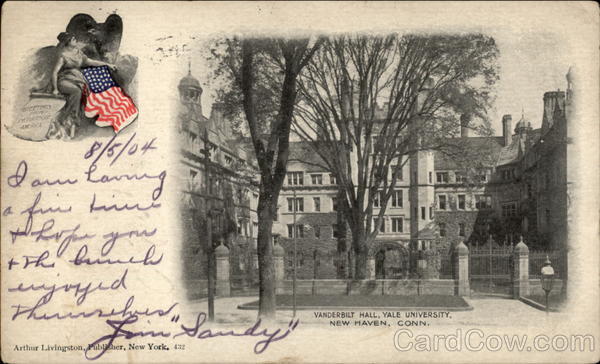 GREETINGS FROM PICTURESQUE AMERICA
8/5/04
I am having
a fine time
+ hope you
+ the bunch
enjoyed
themselves
Jim "Sandy"
VANDERBILT HALL, YALE UNIVERSITY,
NEW HAVEN, CONN.
Arthur Livingston, Publisher, New York. 432
CardCow.com